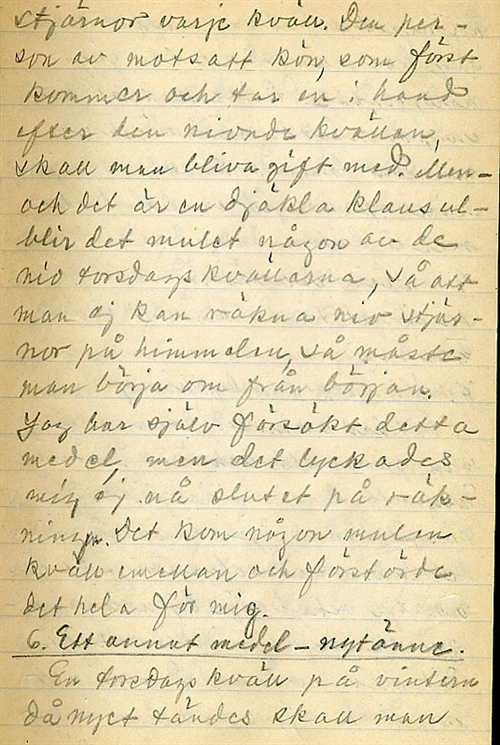 stjärnor varje kväll. Den per-
son av motsatt kön, som först
kommer och tar en i hand
efter den nionde kvällen,
skall man bliva gift med. Men-
och det är en djäkla klausul-
blir det mulet någon av de
nio torsdagskvällarna, så att
man ej kan räkna nio stjär-
nor på himmelen, så måste
man börja om från början.
Jag har själv försökt detta
medel, men det lyckades
mig ej nå slutet på räk-
ningen. Det kom någon mulen
kväll emellan och förstörde
det hela för mig.
6. Ett annat medel - nytänne.
En torsdagskväll på vintern
då nyet tändes skall man